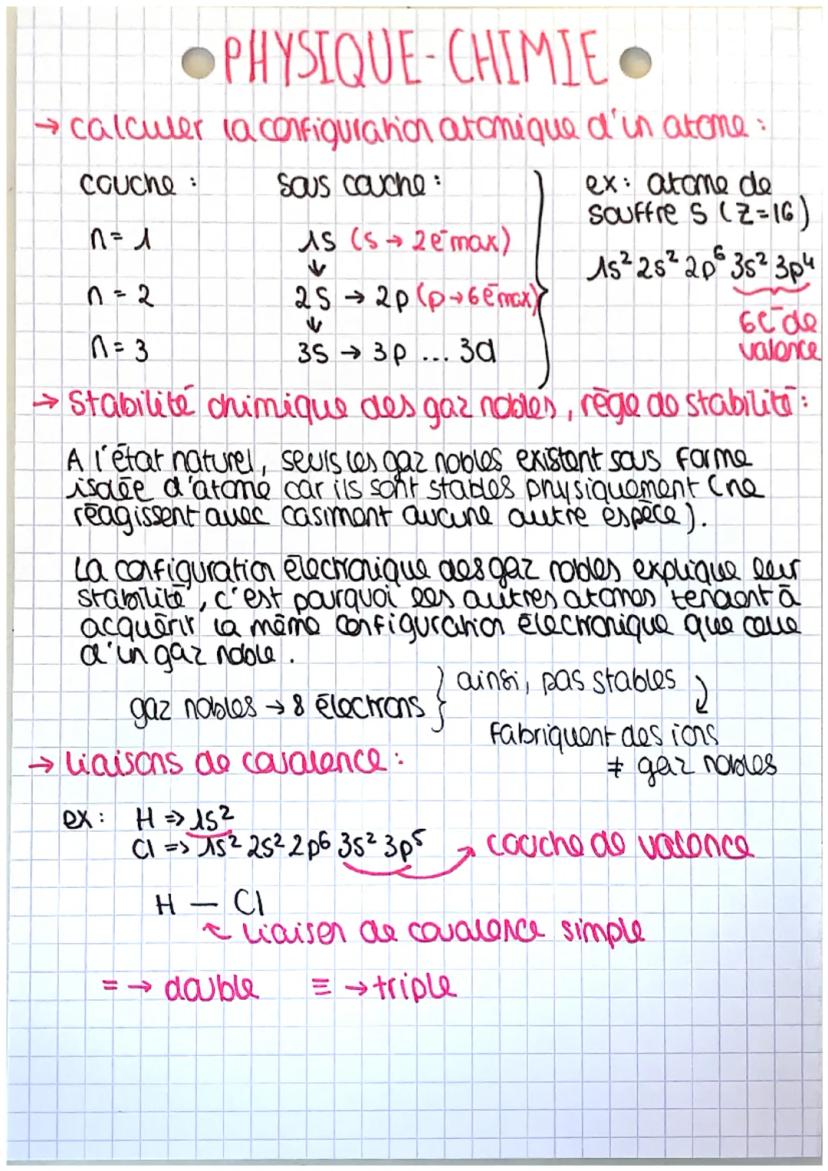 PHYSIQUE-CHIMIE
→ calculer la configuration atomique d'un atome :
couche :
sous couche :
n = 1
1s (s → 2e⁻ max)
↓
n = 2
2s → 2p (p → 6e⁻ max)
↓
n = 3
3s → 3p ... 3d
ex : atome de
souffre S (Z=16)
1s² 2s² 2p⁶ 3s² 3p⁴
6e⁻ de
valence
→ Stabilité chimique des gaz nobles, rège de stabilité :
A l'état naturel, seuls les gaz nobles existent sous forme
isolée d'atome car ils sont stables physiquement (ne
réagissent avec casiment aucune autre espèce).
La configuration électronique des gaz nobles explique leur
stabilité, c'est pourquoi les autres atomes tendent à
acquérir la même configuration électronique que celle
d'un gaz noble.
gaz nobles → 8 électrons } ainsi, pas stables
fabriquent des ions
≠ gaz nobles
→ liaisons de covalence :
ex : H => 1s²
Cl => 1s² 2s² 2p⁶ 3s² 3p⁵ → couche de valence
H — Cl
↖ liaison de covalence simple
= → double ≡ → triple